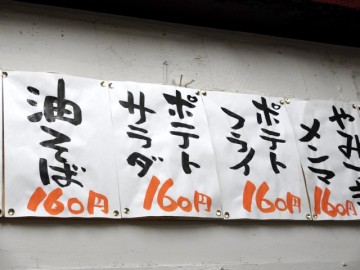 油そば
160円
ポテト
サラダ
160円
ポテト
フライ
160円
メンマ
160円